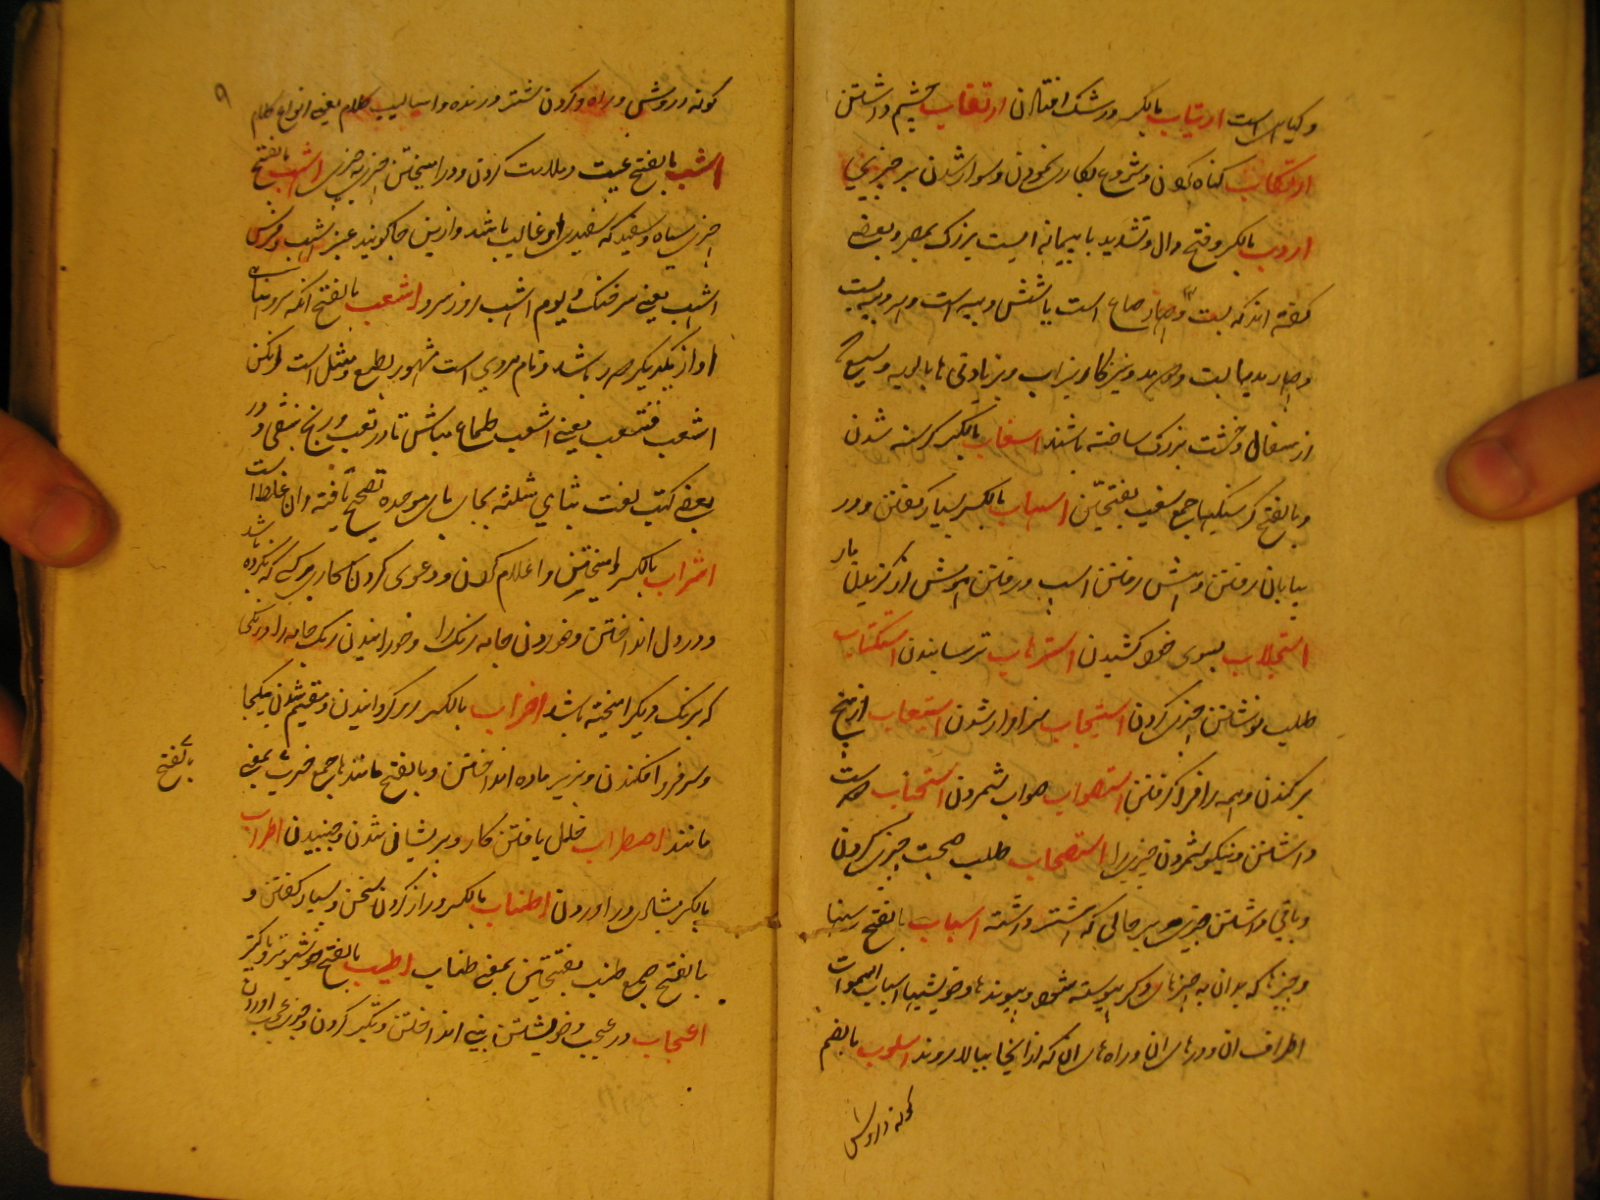 و کیاهی است ارتیاب بالکسر در شک افتادن ارتقاب چشم داشتن
ارتکاب کناه کردن و شروع بکاری نمودن و سوار شدن بر چیزی
اردب بالکسر و فتح دال و تشدید با پیمانه ایست بزرک بمصر و بعضی
کفته اند که بست و چهار صاع است یا شش ویبه است و هر ویبه بیست
و چهار مد
از سفال و خشت بزرک ساخته باشند اسغاب بالکسر کرسنه شدن
و بالفتح کرسنکیها جمع سغب بفتحتین اسهاب بالکسر بسیار کفتن و در
بیابان رفتن و پیش رفتن اسب و رفتن هوش از کزیدن مار
استجلاب بسوی خود کشیدن استرهاب ترسانیدن استکتاب
طلب نوشتن چیزی کردن استیجاب سزاوار شدن استیعاب از بیخ
برکندن و همه را فرا کرفتن استصواب صواب شمردن استحباب دوست
داشتن و نیکو شمردن چیزیرا استصحاب طلب صحبت چیزی کردن
و باقی داشتن چیزی بر حالی که داشته اسباب بالفتح رسنها
و چیزها که بدان به چیزهای دیکر پیوسته شود و پیوندها و خویشیها اسباب السموات
اطراف ان و درهای ان و راههای ان که از اینجا ببالا روند اسلوب بالضم
کونه و روش
کونه و روش و راه و کردن شتر درنده و اسالیب کلام یعنی انواع کلام
اشب بالفتح عیب و ملامت کردن و در امیختن چیزی بچیزی اشهب بالفتح
چیزی سیاه و سفید که سفیدی او غالب باشد و ازین جا کویند عنبر اشهب و فرس
اشهب یعنی و یوم اشهب روز سرد اشعب بالفتح انکه سر دو شاخ
او از یکدیکر دور باشد و نام مردی است مشهور بطمع و مثل است لا تکن
اشعب فتتعب یعنی اشعب طماع مباش تا در تعب و رنج نیفتی و در
بعضی کتب لغت بثای مثلثه بجای بای موحده تصحیح یافته و ان غلط است
اشراب بالکسر امیختن و اعلام کردن و دعوی کردن کار بر کسی که نکرده باشد
و در دل انداختن و خوردن جامه رنک را و خورانیدن رنک جامه را و رنکی
که برنک دیکر امیخته باشد اضراب بالکسر رو کردانیدن و مقیم شدن بیکجا
و سر فرو افکندن و بزیر ماده انداختن و بالفتح مانندها جمع ضرب بمعنی
بالفتح
مانند اضطراب خلل یافتن کار و پریشانی شدن و جنبیدن اطراب
بالکسر بشادی در اوردن اطناب بالکسر دراز کردن سخن و بسیار کفتن و
بالفتح جمع طنب بفتحتین بمعنی طناب اطیب بالفتح خوشبوتر و پاکتر
اعجاب در عجب و خویشتن بینی انداختن و تکبر کردن و خوش
۹